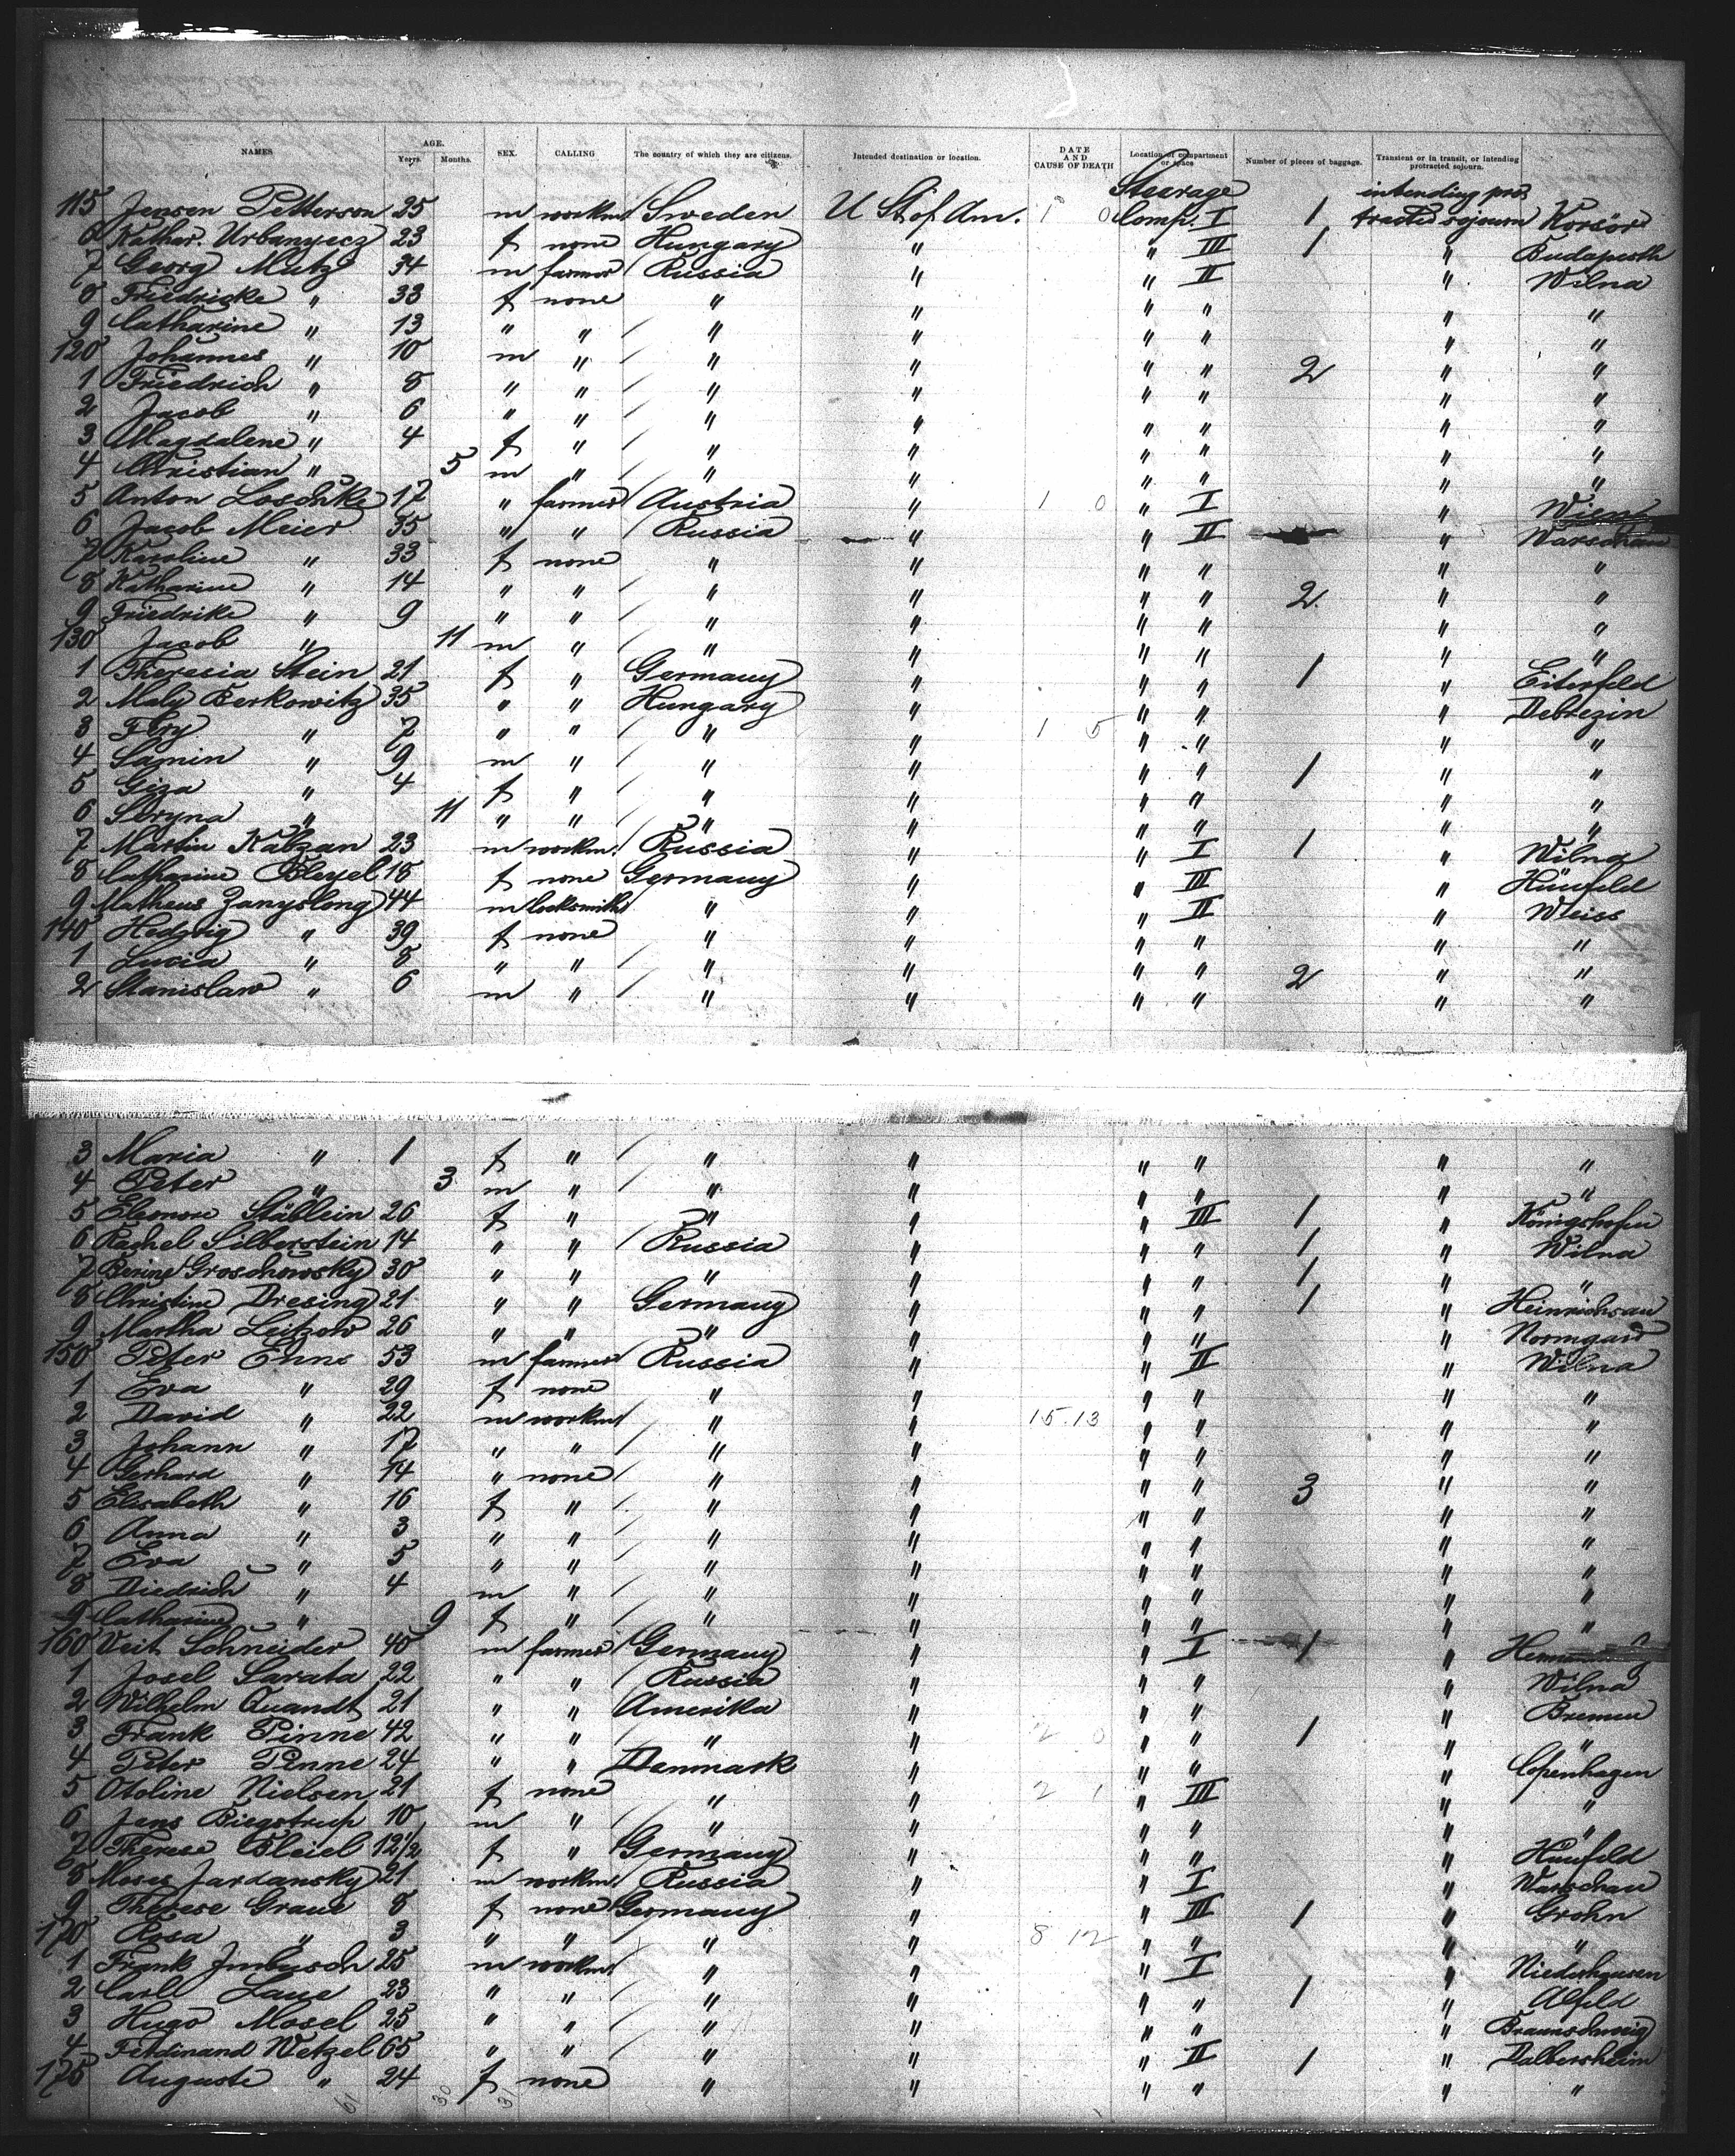 NAMES AGE. Years. Months. SEX. CALLING The country of which they are citizens. Intended destination or location. DATE AND CAUSE OF DEATH Location of compartment or space Number of pieces of baggage. Transient or in transit, or intending protracted sojourn.
Steerage intending pro
115 Jensen Petterson 25 m workm Sweden U St of Am. 1 0 Comp. I 1 tracted sojourn Korsör
6 Kathar. Urbanyecz 23 f none Hungary " " III 1 " Budapesth
7 Georg Mutz 34 m farmer Russia " " II " Wilna
8 Friedricke " 33 f none " " " " " "
9 Catharine " 13 " " " " " " " "
120 Johannes " 10 m " " " " " 2 " "
1 Friedrich " 8 " " " " " " " "
2 Jacob " 6 " " " " " " " "
3 Magdalene " 4 f " " " " " " "
4 Christian " 5 m " " " " " " "
5 Anton Loschke 17 " farmer Austria " 1 0 " I " Wien
6 Jacob Meier 35 " " Russia " " II " Warschau
7 Karoline " 33 f none " " " " " "
8 Katharine " 14 " " " " " " 2 " "
9 Friedrike " 9 " " " " " " " "
130 Jacob " 11 m " " " " " " "
1 Theresia Stein 21 f " Germany " " " 1 " Eiterfeld
2 Maly Berkowitz 35 " " Hungary " " " " Debrezin
3 Fery " 7 " " " " 1 5 " " " "
4 Samin " 9 m " " " " " 1 " "
5 Giza " 4 f " " " " " " "
6 Seryna " 11 " " " " " " " "
7 Martin Kalzan 23 m workm. Russia " " I 1 " Wilna
8 Catharine Bleyel 18 f none Germany " " III " Hünfeld
9 Matheus Zanyslong 44 m locksmith " " " II " Weiss
140 Hedwig " 39 f none " " " " " "
1 Lucia " 8 " " " " " " 2 " "
2 Stanislaw " 6 m " " " " " " "
3 Maria " 1 f " " " " " " "
4 Peter " 3 m " " " " " " "
5 Eleonore Stäblein 26 f " " " " III 1 " Königshofen
6 Rachel Silberstein 14 " " Russia " " " 1 " Wilna
7 Groschowsky 30 " " " " " " 1 " "
8 Christine Dresing 21 " " Germany " " " 1 " Heinrichsau
9 Martha Leitzow 26 " " " " " " "
150 Peter Enns 53 m farmer Russia " " II " Wilna
1 Eva " 29 f none " " " " " "
2 David " 22 m workm " " 15.13 " " " "
3 Johann " 17 " " " " " " " "
4 Gerhard " 14 " none " " " " 3 " "
5 Elisabeth " 16 f " " " " " " "
6 Anna " 3 " " " " " " " "
7 Eva " 5 " " " " " " " "
8 Diedrich " 4 m " " " " " " "
9 Catharine " 9 f " " " " " " "
160 Veit Schneider 40 m farmer Germany " " I 1 "
1 Josel Sarata 22 " " Russia " " " " Wilna
2 Wilhelm Quandt 21 " " Amerika " " " " Bremen
3 Frank Pinne 42 " " " " 2 0 " " 1 " "
4 Peter Penne 24 " " Danmark " " " " Copenhagen
5 Otoline Nielsen 21 f none " " 2 1 " III " "
6 Jens Biegstrup 10 m " " " " " " "
7 Therese Bleiel 12 1/2 f " Germany " " " " Hünfeld
8 Moses Jardansky 21 m workm Russia " " I " Warschau
9 Therese Graue 8 f none Germany " " III 1 " Grohn
170 Rosa " 3 " " " " 8 12 " " " "
1 Frank Jmbusch 25 m workm " " " I " Niederhausen
2 Carll Laue 23 " " " " " " 1 " Alfeld
3 Hugo Mosel 25 " " " " " " " Braunschweig
4 Ferdinand Wetzel 65 " " " " " II 1 " Dalbersheim
175 Auguste " 24 f none " " " " " "
61 30 31